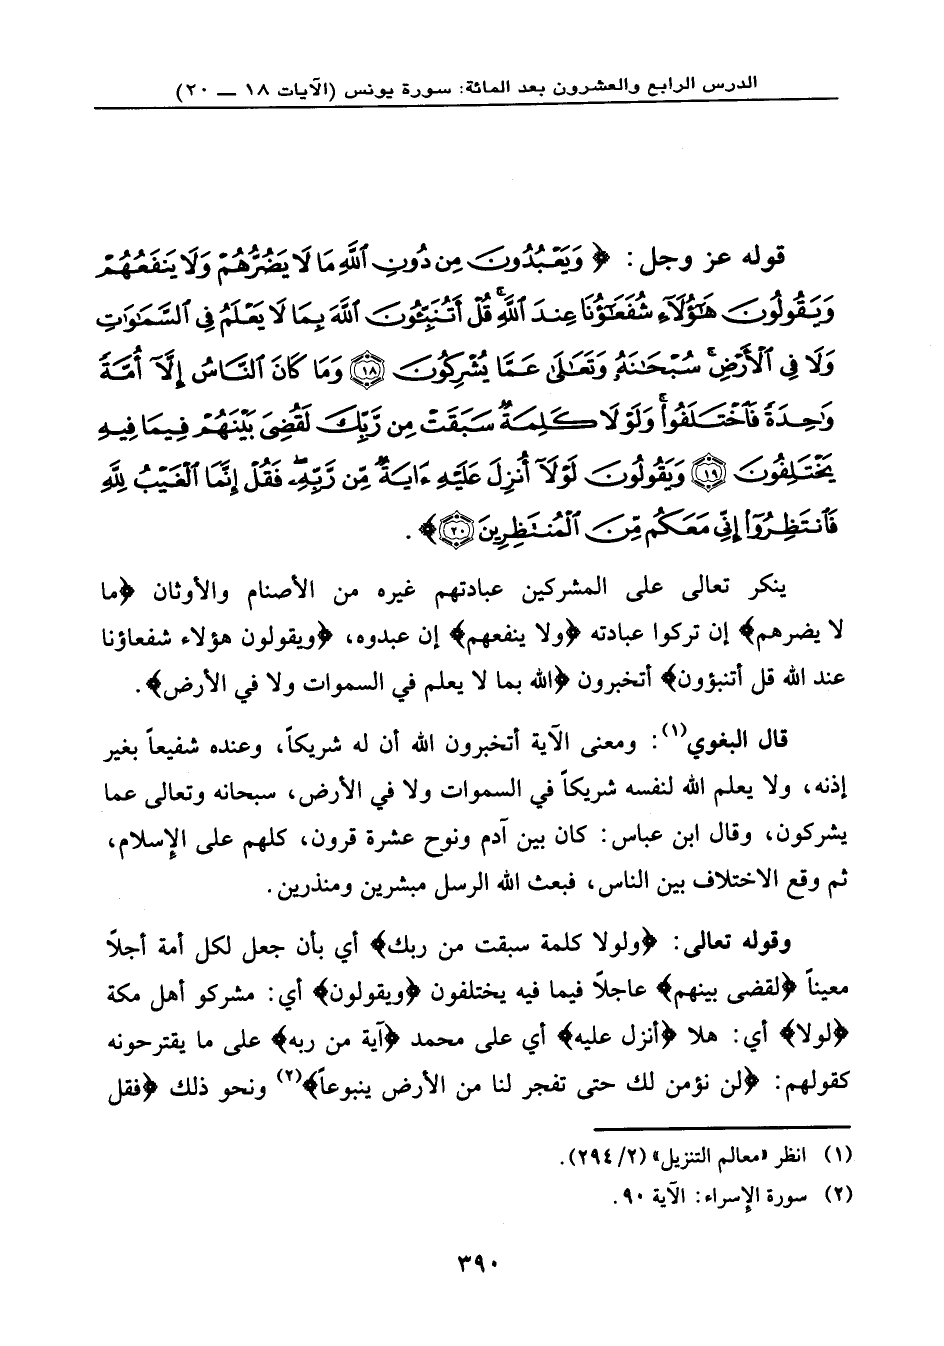 الدرس الرابع والعشرون بعد المائة: سورة يونس (الآيات ١٨ ــ ٢٠)
قوله عز وجل: ﴿ وَيَعْبُدُونَ مِن دُونِ ٱللَّهِ مَا لَا يَضُرُّهُمْ وَلَا يَنفَعُهُمْ
وَيَقُولُونَ هَٰٓؤُلَآءِ شُفَعَٰٓؤُنَا عِندَ ٱللَّهِ ۚ قُلْ أَتُنَبِّـُٔونَ ٱللَّهَ بِمَا لَا يَعْلَمُ فِى ٱلسَّمَٰوَٰتِ
وَلَا فِى ٱلْأَرْضِ ۚ سُبْحَٰنَهُۥ وَتَعَٰلَىٰ عَمَّا يُشْرِكُونَ ﴿١٨﴾ وَمَا كَانَ ٱلنَّاسُ إِلَّآ أُمَّةً
وَٰحِدَةً فَٱخْتَلَفُوا۟ ۚ وَلَوْلَا كَلِمَةٌ سَبَقَتْ مِن رَّبِّكَ لَقُضِىَ بَيْنَهُمْ فِيمَا فِيهِ
يَخْتَلِفُونَ ﴿١٩﴾ وَيَقُولُونَ لَوْلَآ أُنزِلَ عَلَيْهِ ءَايَةٌ مِّن رَّبِّهِۦ ۖ فَقُلْ إِنَّمَا ٱلْغَيْبُ لِلَّهِ
فَٱنتَظِرُوٓا۟ إِنِّى مَعَكُم مِّنَ ٱلْمُنتَظِرِينَ ﴿٢٠﴾ ﴾.
ينكر تعالى على المشركين عبادتهم غيره من الأصنام والأوثان ﴿ما
لا يضرهم﴾ إن تركوا عبادته ﴿ولا ينفعهم﴾ إن عبدوه، ﴿ويقولون هؤلاء شفعاؤنا
عند الله قل أتنبؤون﴾ أتخبرون ﴿الله بما لا يعلم في السموات ولا في الأرض﴾.
قال البغوي(١): ومعنى الآية أتخبرون الله أن له شريكاً، وعنده شفيعاً بغير
إذنه، ولا يعلم الله لنفسه شريكاً في السموات ولا في الأرض، سبحانه وتعالى عما
يشركون، وقال ابن عباس: كان بين آدم ونوح عشرة قرون، كلهم على الإسلام،
ثم وقع الاختلاف بين الناس، فبعث الله الرسل مبشرين ومنذرين.
وقوله تعالى: ﴿ولولا كلمة سبقت من ربك﴾ أي بأن جعل لكل أمة أجلاً
معيناً ﴿لقضى بينهم﴾ عاجلاً فيما فيه يختلفون ﴿ويقولون﴾ أي: مشركو أهل مكة
﴿لولا﴾ أي: هلا ﴿أنزل عليه﴾ أي على محمد ﴿آية من ربه﴾ على ما يقترحونه
كقولهم: ﴿لن نؤمن لك حتى تفجر لنا من الأرض ينبوعاً﴾(٢) ونحو ذلك ﴿فقل
(١) انظر «معالم التنزيل» (٢/ ٢٩٤).
(٢) سورة الإسراء: الآية ٩٠.
٣٩٠